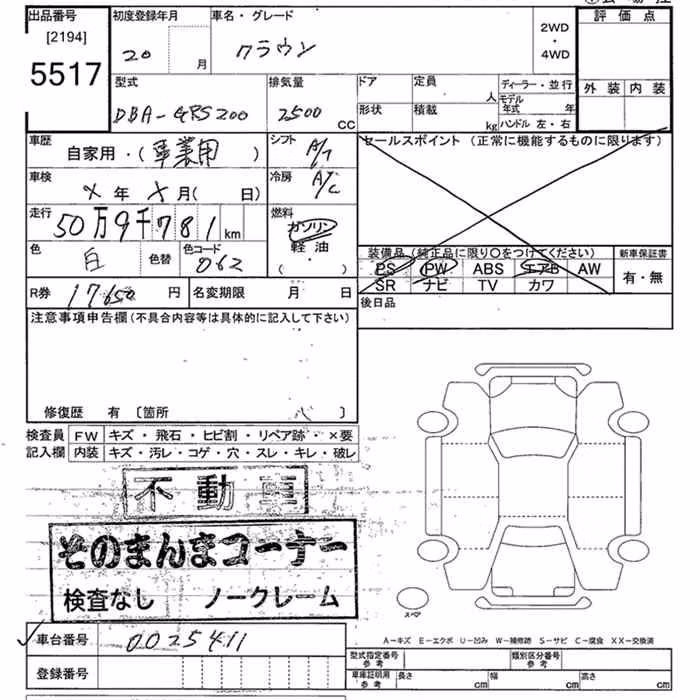 出品番号 初度登録年月 車名・グレード 評価点
[2194] 20 月 クラウン 2WD・4WD
5517
型式 排気量 ドア 定員 人 ディーラー・並行 外装 内装
DBA-GRS200 2500 CC 形状 積載 kg モデル年式 年
ハンドル 左・右
車歴 シフト セールスポイント (正常に機能するものに限ります)
自家用・(事業用) A/T
車検 冷房
X年 X月( 日) A/C
走行 燃料
50万9千781km ガソリン・軽油
色 色替 色コード ( ) 装備品(純正品に限り○をつけてください) 新車保証書
白 062 PS PW ABS エアB AW 有・無
SR ナビ TV カワ
R券 17650円 名変期限 月 日 後日品
注意事項申告欄(不具合内容等は具体的に記入して下さい)
修復歴 有 〔箇所 〕
検査員 FW キズ・飛石・ヒビ割・リペア跡・×要
記入欄 内装 キズ・汚レ・コゲ・穴・スレ・キレ・破レ
不動車
そのまんまコーナー
検査なし ノークレーム
スペア
A-キズ E-エクボ U-凹み W-補修跡 S-サビ C-腐食 XX-交換済
車台番号 0025411
型式指定番号参考 類別区分番号参考
登録番号 車庫証明用参考 長さ cm 幅 cm 高さ cm